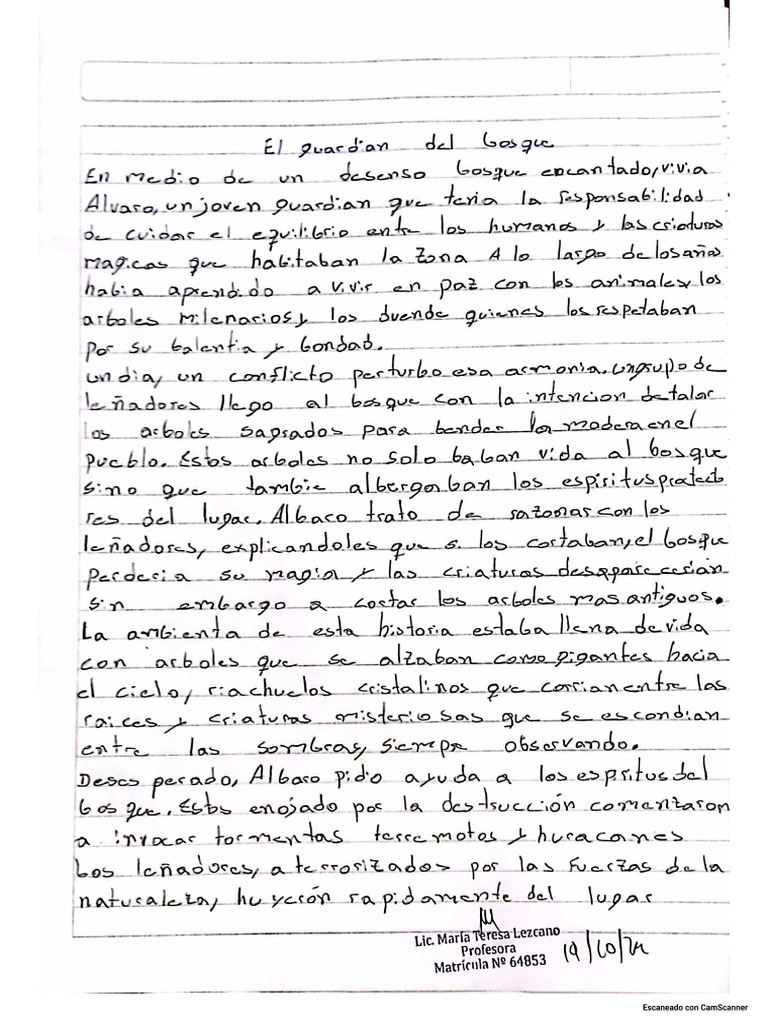 El guardian del bosque
En medio de un desenso bosque encantado, vivia
Alvaro, un joven guardian que tenia la responsabilidad
de cuidar el equilibrio entre los humanos y las criaturas
magicas que habitaban la zona A lo largo de los años
habia aprendido a vivir en paz con los animales y los
arboles milenarios y los duende quienes los respetaban
por su balentia y bondad.
un dia, un conflicto perturbo esa armonia. un grupo de
leñadores llego al bosque con la intencion de talar
los arboles sagrados para bender la madera en el
pueblo. Estos arboles no solo baban vida al bosque
sino que tambie albergarban los espiritus protecto
res del lugar. Albaco trato de razonar con los
leñadores, explicandoles que si los cortaban, el bosque
perderia su magia y las criaturas desaparecerian
sin embargo a cortar los arboles mas antiguos.
La ambienta de esta historia estaba llena de vida
con arboles que se alzaban como gigantes hacia
el cielo, riachuelos cristalinos que corrian entre las
raices y criaturas misteriosas que se escondian
entre las sombras, siempre observando.
Deses perado, Albaro pidio ayuda a los espritus del
bosque. Estos enojado por la destrucción comenzaron
a invocar tormentas terremotos y huracanes
Los leñadores, aterrorizados por las fuerzas de la
naturaleza, huyerón rapidamente del lugar
Lic. María Teresa Lezcano
Profesora
Matrícula Nº 64853
19/10/24
Escaneado con CamScanner